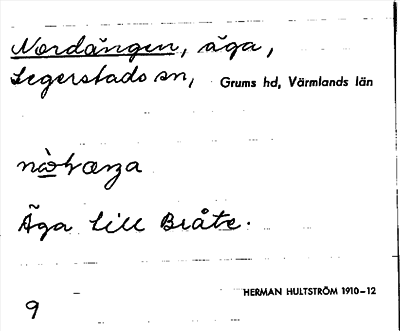 Nordängen, äga,
Segerstads sn, Grums hd, Värmlands län
Äga till Bråte.
HERMAN HULTSTRÖM 1910-12
9